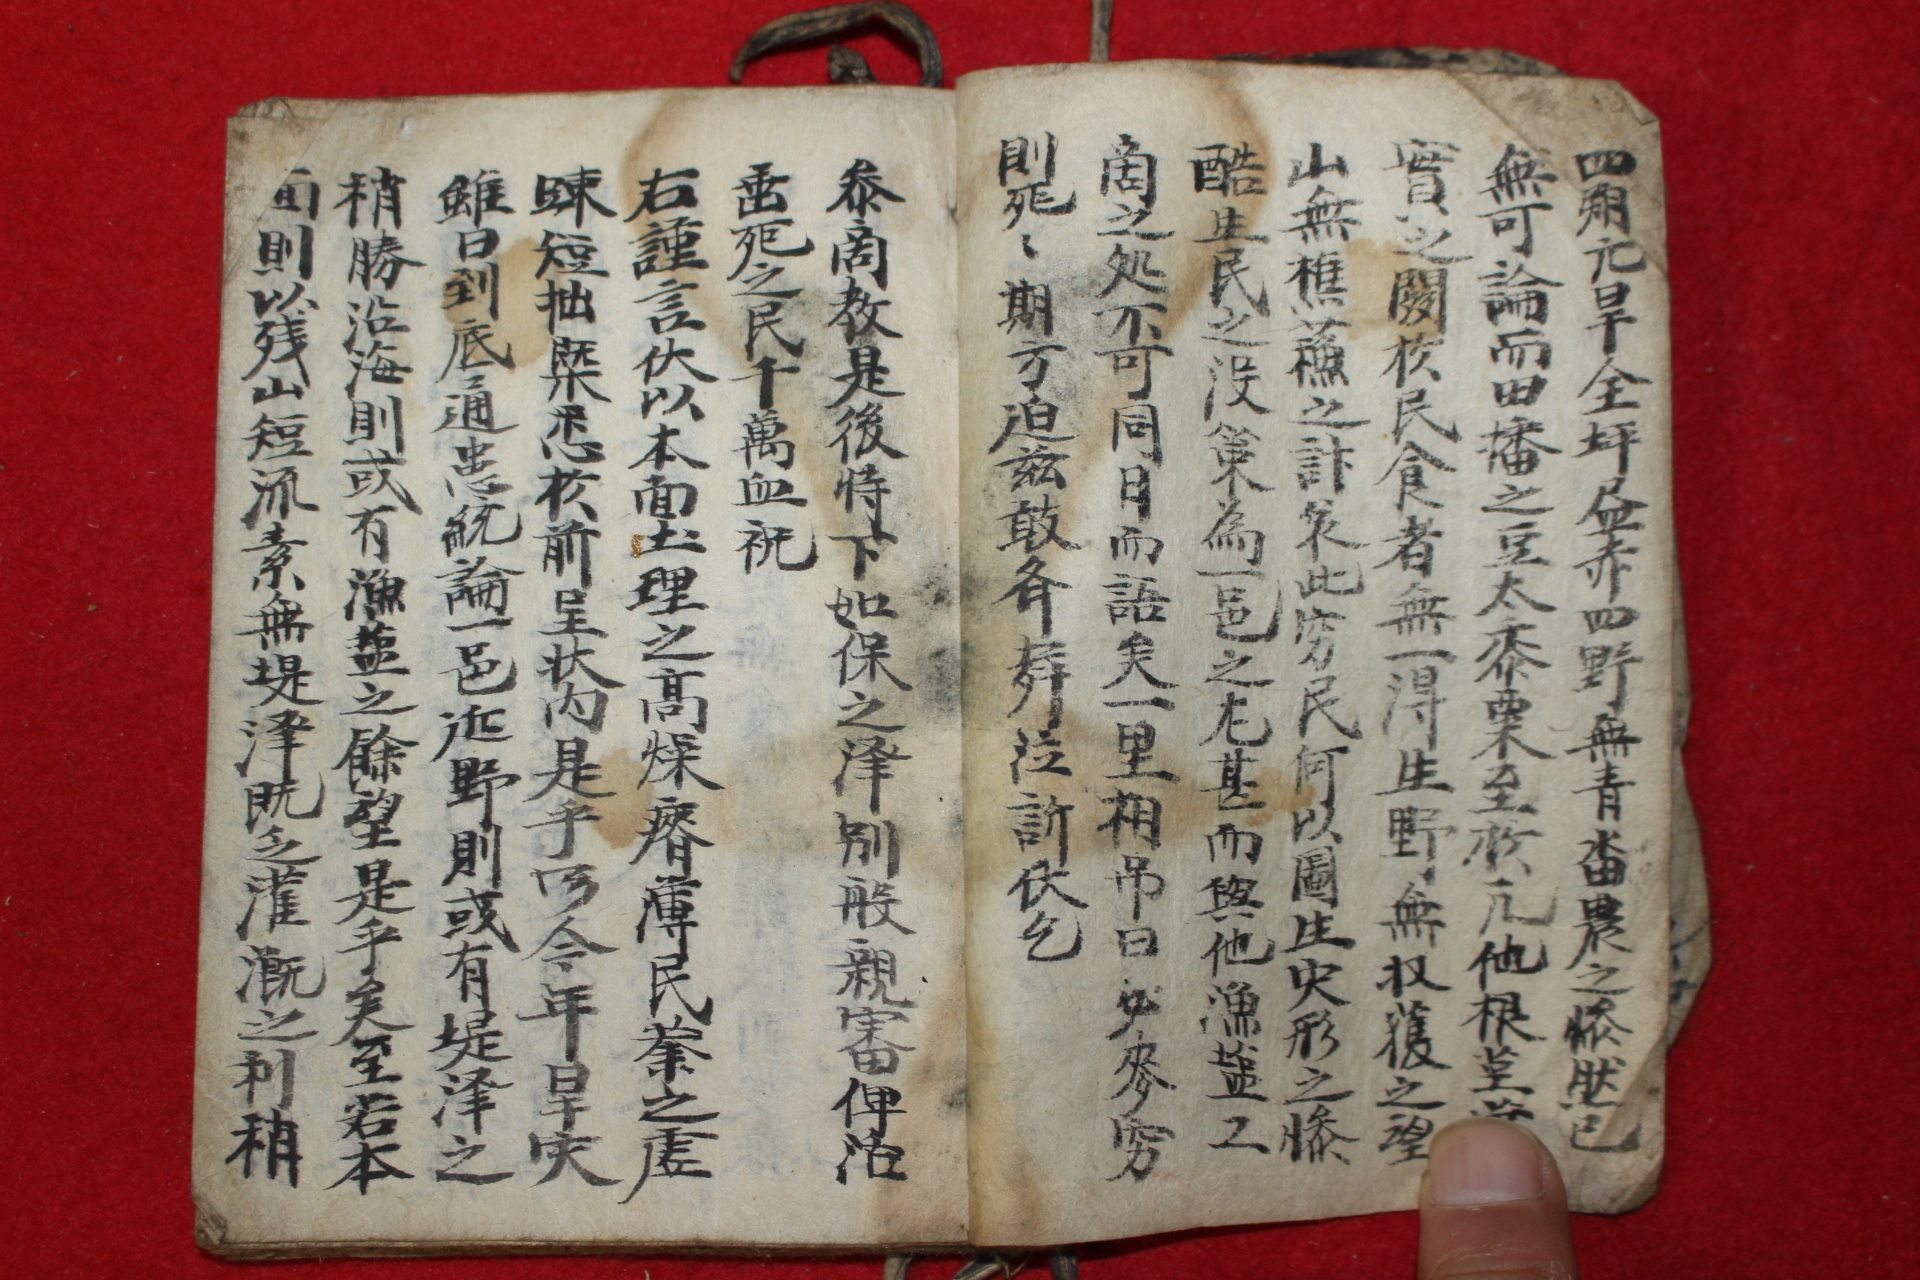 四朔亢旱全坪盡赤四野無青畓農之慘然已
無可論而田播之豆太黍粟至於元他根莖
實之闕核民食者無一得生野無収獲之望
山無樵蘓之計哀此穷民何以圖生灾形之慘
酷生民之没策為一邑之尤甚而與他漁盐工
商之処不可同日而語矣一里相吊曰 麥穷
則死〻期方迫玆敢齐辞泣訴伏乞
叅商敎是後特下如保之泽别般親審俾活
垂死之民千萬血祝
右謹言伏以本面土理之髙燥瘠薄民業之虛
踈短拙槩悉於前呈状內是乎所今年旱灾
雖曰到底通患統論一邑延野則或有堤泽之
稍勝沿海則或有漁盐之餘望是乎矣至若本
面則以残山短流素無堤泽既乏灌漑之利稍